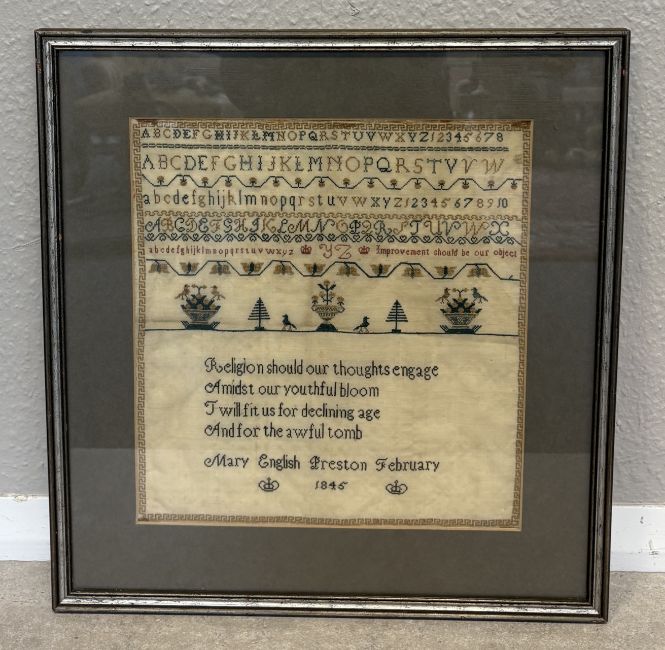 ABCDEFGHIJKLMNOPQRSTUVWXYZ12345678
ABCDEFGHIJKLMNOPQRSTVVW
abcdefghijklmnopqrstuvwxyz12345678910
ABCDEFGHIJKLMNOPQRSTUVWX
abcdefghijklmnopqrstuvwxyz YZ Improvement should be our object
Religion should our thoughts engage
Amidst our youthful bloom
Twill fit us for declining age
And for the awful tomb
Mary English Preston February
1845